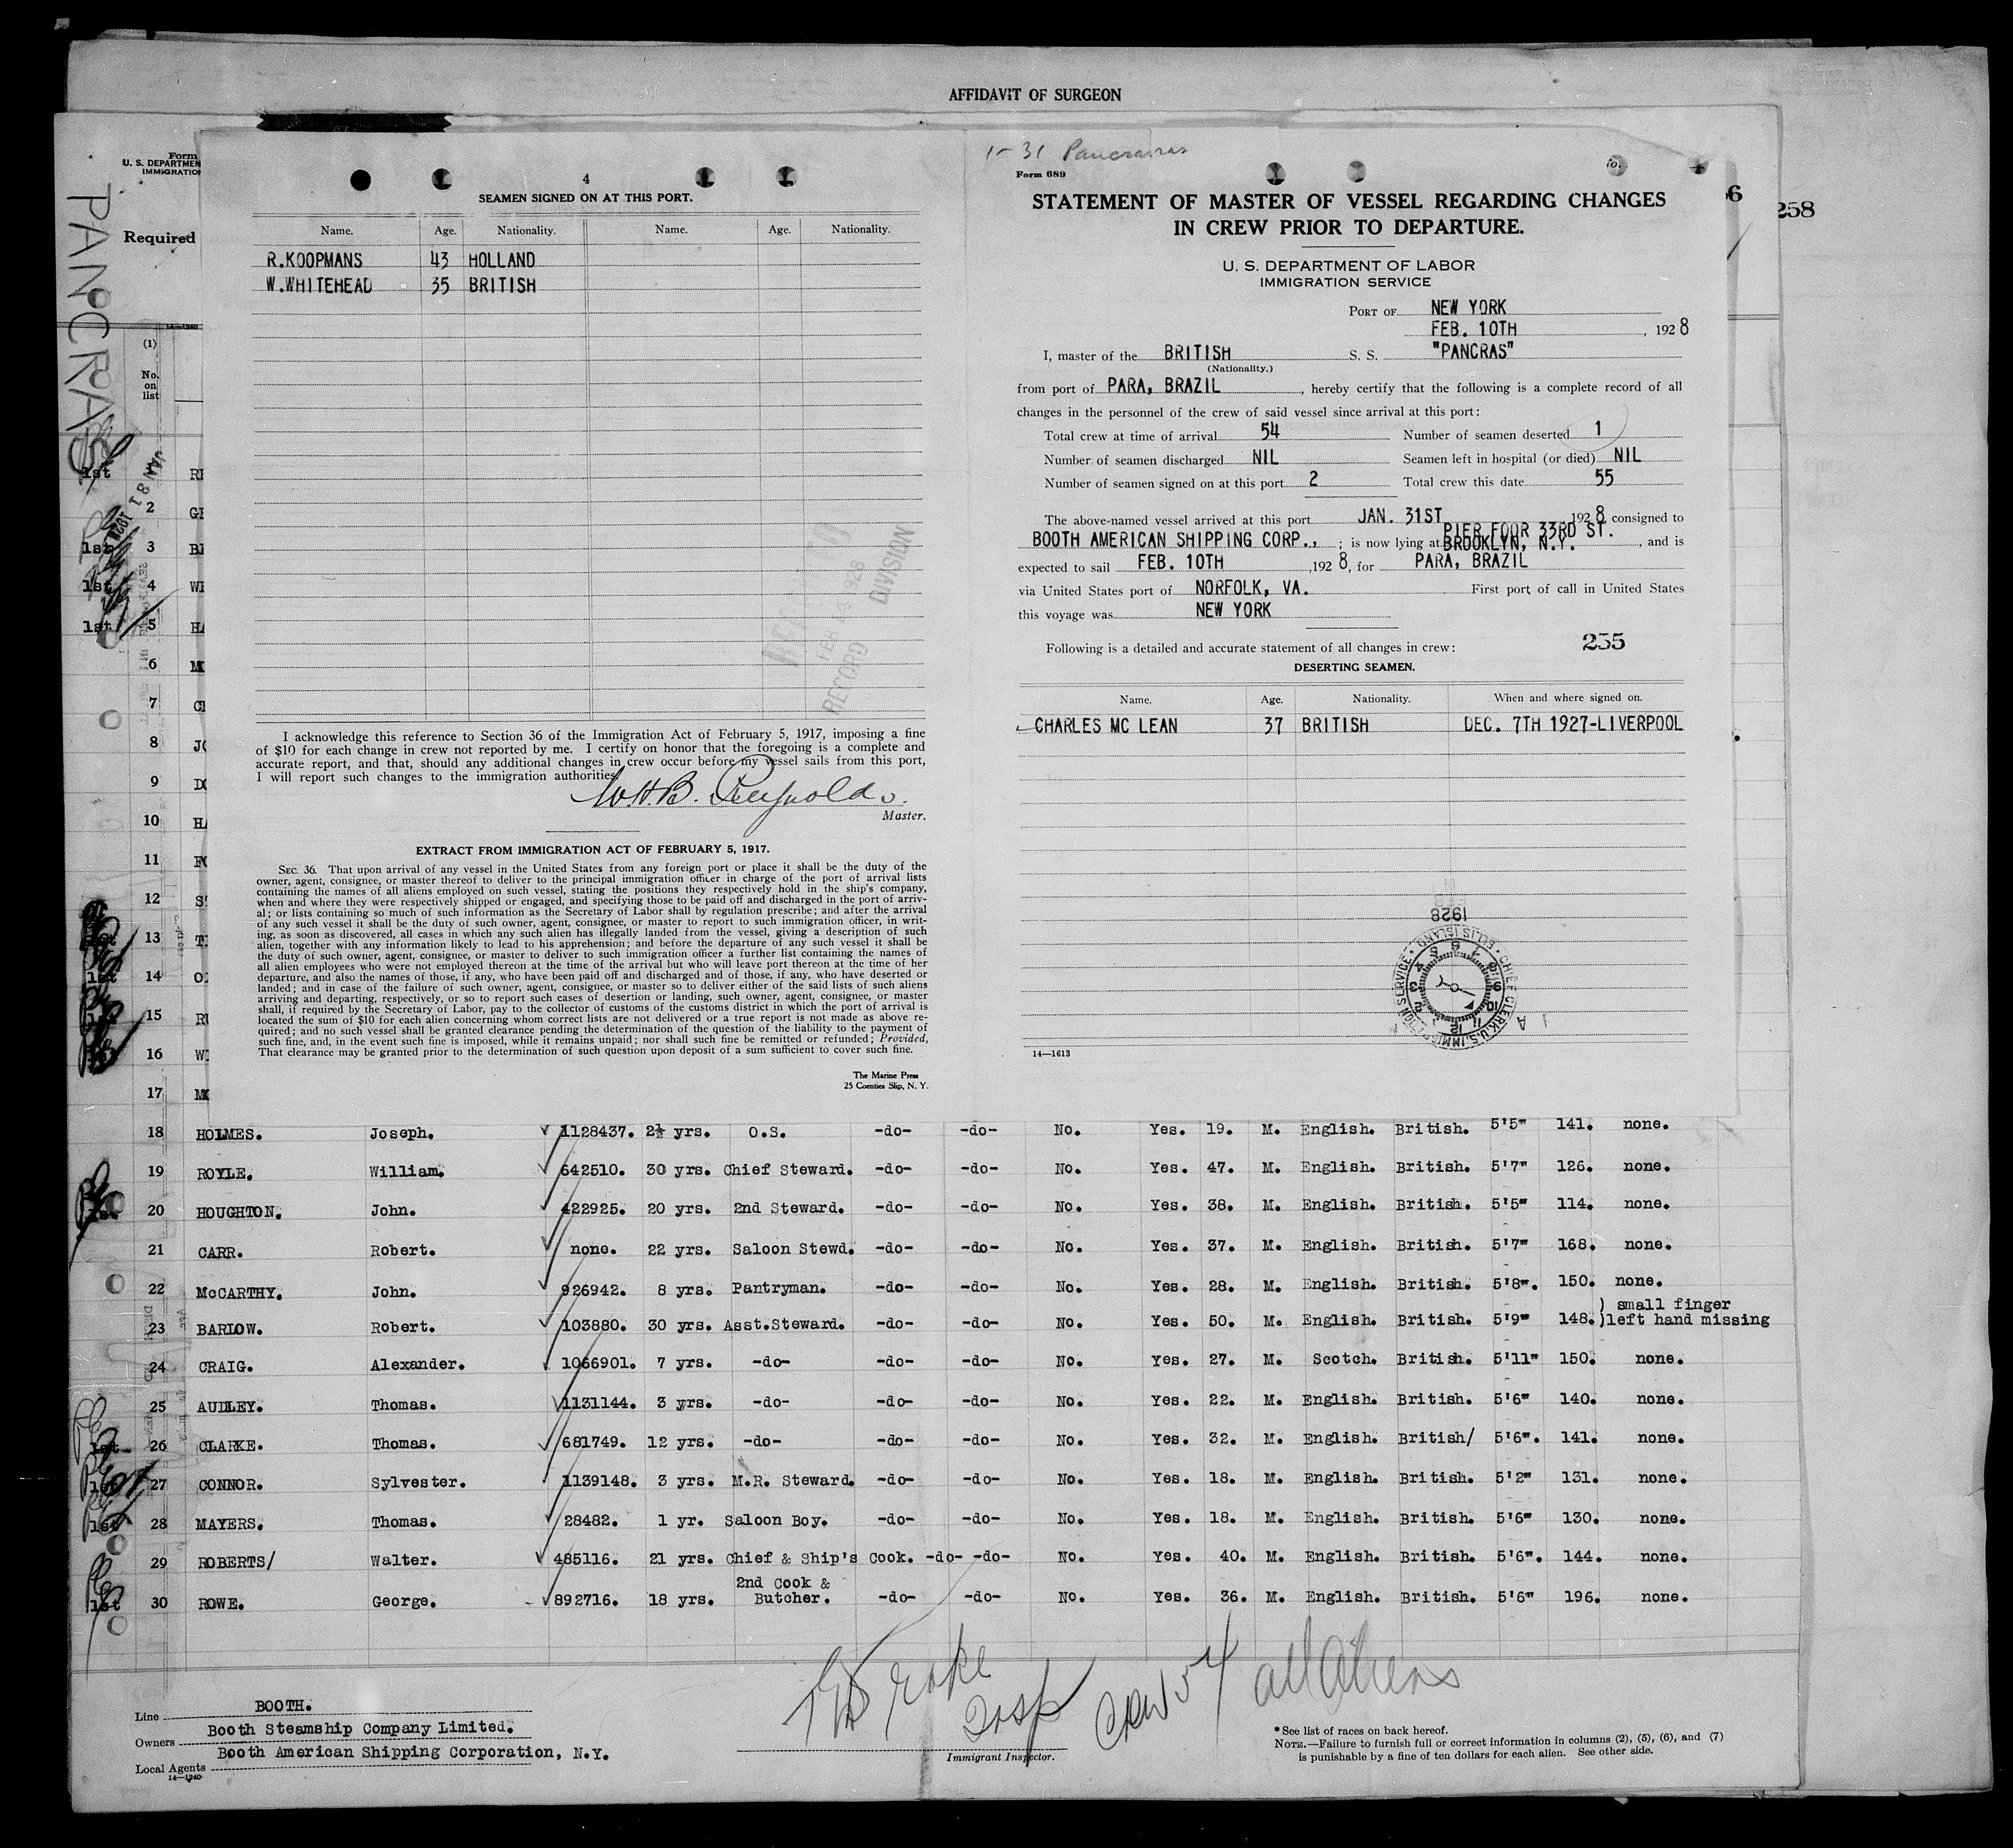 AFFIDAVIT OF SURGEON
Form
U. S. DEPARTMEN
IMMIGRATION
PANCRAS
Required
14—1240
(1)
No.
on
list
4
SEAMEN SIGNED ON AT THIS PORT.
Name. Age. Nationality. Name. Age. Nationality.
R.KOOPMANS 43 HOLLAND
W.WHITEHEAD 35 BRITISH
RECORD DIVISION
I acknowledge this reference to Section 36 of the Immigration Act of February 5, 1917, imposing a fine
of $10 for each change in crew not reported by me. I certify on honor that the foregoing is a complete and
accurate report, and that, should any additional changes in crew occur before my vessel sails from this port,
I will report such changes to the immigration authorities.
W.H.B. Reynolds.
Master.
EXTRACT FROM IMMIGRATION ACT OF FEBRUARY 5, 1917.
SEC. 36. That upon arrival of any vessel in the United States from any foreign port or place it shall be the duty of the
owner, agent, consignee, or master thereof to deliver to the principal immigration officer in charge of the port of arrival lists
containing the names of all aliens employed on such vessel, stating the positions they respectively hold in the ship's company,
when and where they were respectively shipped or engaged, and specifying those to be paid off and discharged in the port of arriv-
al; or lists containing so much of such information as the Secretary of Labor shall by regulation prescribe; and after the arrival
of any such vessel it shall be the duty of such owner, agent, consignee, or master to report to such immigration officer, in writ-
ing, as soon as discovered, all cases in which any such alien has illegally landed from the vessel, giving a description of such
alien, together with any information likely to lead to his apprehension; and before the departure of any such vessel it shall be
the duty of such owner, agent, consignee, or master to deliver to such immigration officer a further list containing the names of
all alien employees who were not employed thereon at the time of the arrival but who will leave port thereon at the time of her
departure, and also the names of those, if any, who have been paid off and discharged and of those, if any, who have deserted or
landed; and in case of the failure of such owner, agent, consignee, or master so to deliver either of the said lists of such aliens
arriving and departing, respectively, or so to report such cases of desertion or landing, such owner, agent, consignee, or master
shall, if required by the Secretary of Labor, pay to the collector of customs of the customs district in which the port of arrival is
located the sum of $10 for each alien concerning whom correct lists are not delivered or a true report is not made as above re-
quired; and no such vessel shall be granted clearance pending the determination of the question of the liability to the payment of
such fine, and, in the event such fine is imposed, while it remains unpaid; nor shall such fine be remitted or refunded; Provided,
That clearance may be granted prior to the determination of such question upon deposit of a sum sufficient to cover such fine.
The Marine Press
25 Coenties Slip, N. Y.
1-31
Form 689
STATEMENT OF MASTER OF VESSEL REGARDING CHANGES
IN CREW PRIOR TO DEPARTURE.
258
U. S. DEPARTMENT OF LABOR
IMMIGRATION SERVICE
PORT OF NEW YORK
FEB. 10TH, 1928
I, master of the BRITISH S. S. "PANCRAS"
(Nationality.)
from port of PARA, BRAZIL, hereby certify that the following is a complete record of all
changes in the personnel of the crew of said vessel since arrival at this port:
Total crew at time of arrival 54 Number of seamen deserted 1
Number of seamen discharged NIL Seamen left in hospital (or died) NIL
Number of seamen signed on at this port 2 Total crew this date 55
The above-named vessel arrived at this port JAN. 31ST 1928, consigned to
BOOTH AMERICAN SHIPPING CORP., ; is now lying at PIER FOUR 33RD ST. BROOKLYN, N.Y., and is
expected to sail FEB. 10TH, 1928, for PARA, BRAZIL
via United States port of NORFOLK, VA. First port of call in United States
this voyage was NEW YORK
Following is a detailed and accurate statement of all changes in crew: 255
DESERTING SEAMEN.
Name. Age. Nationality. When and where signed on.
CHARLES MC LEAN 37 BRITISH DEC. 7TH 1927-LIVERPOOL
1928
CHIEF CLERK, U.S. IMMIGRATION SERVICE • ELLIS ISLAND •
14—1613
1st
2
1st 3
1st 4
1st 5
6
7
8
9
10
11
12
13
1st 14
15
16
17
18 HOLMES. Joseph. 1128437. 2½ yrs. O.S. -do- -do- No. Yes. 19. M. English. British. 5'5" 141. none.
19 ROYLE. William. 642510. 30 yrs. Chief Steward. -do- -do- No. Yes. 47. M. English. British. 5'7" 126. none.
20 HOUGHTON. John. 422925. 20 yrs. 2nd Steward. -do- -do- No. Yes. 38. M. English. British. 5'5" 114. none.
21 CARR. Robert. none. 22 yrs. Saloon Stewd. -do- -do- No. Yes. 37. M. English. British. 5'7" 168. none.
22 McCARTHY. John. 926942. 8 yrs. Pantryman. -do- -do- No. Yes. 28. M. English. British. 5'8". 150. none.
23 BARLOW. Robert. 103880. 30 yrs. Asst.Steward. -do- -do- No. Yes. 50. M. English. British. 5'9" 148. ) small finger
)left hand missing
24 CRAIG. Alexander. 1066901. 7 yrs. -do- -do- -do- No. Yes. 27. M. Scotch. British. 5'11" 150. none.
25 AUDLEY. Thomas. 1131144. 3 yrs. -do- -do- -do- No. Yes. 22. M. English. British. 5'6" 140. none.
1st 26 CLARKE. Thomas. 681749. 12 yrs. -do- -do- -do- No. Yes. 32. M. English. British/ 5'6". 141. none.
1st 27 CONNOR. Sylvester. 1139148. 3 yrs. M.R. Steward. -do- -do- No. Yes. 18. M. English. British. 5'2" 131. none.
1st 28 MAYERS. Thomas. 28482. 1 yr. Saloon Boy. -do- -do- No. Yes. 18. M. English. British. 5'6" 130. none.
29 ROBERTS/ Walter. 485116. 21 yrs. Chief & Ship's Cook. -do- -do- No. Yes. 40. M. English. British. 5'6". 144. none.
1st 30 ROWE. George. 892716. 18 yrs. 2nd Cook & Butcher. -do- -do- No. Yes. 36. M. English. British. 5'6" 196. none.
Insp Crew 54 all Aliens
Line BOOTH.
Owners Booth Steamship Company Limited.
Local Agents Booth American Shipping Corporation, N.Y.
14—1240
Immigrant Inspector.
*See list of races on back hereof.
NOTE.—Failure to furnish full or correct information in columns (2), (5), (6), and (7)
is punishable by a fine of ten dollars for each alien. See other side.